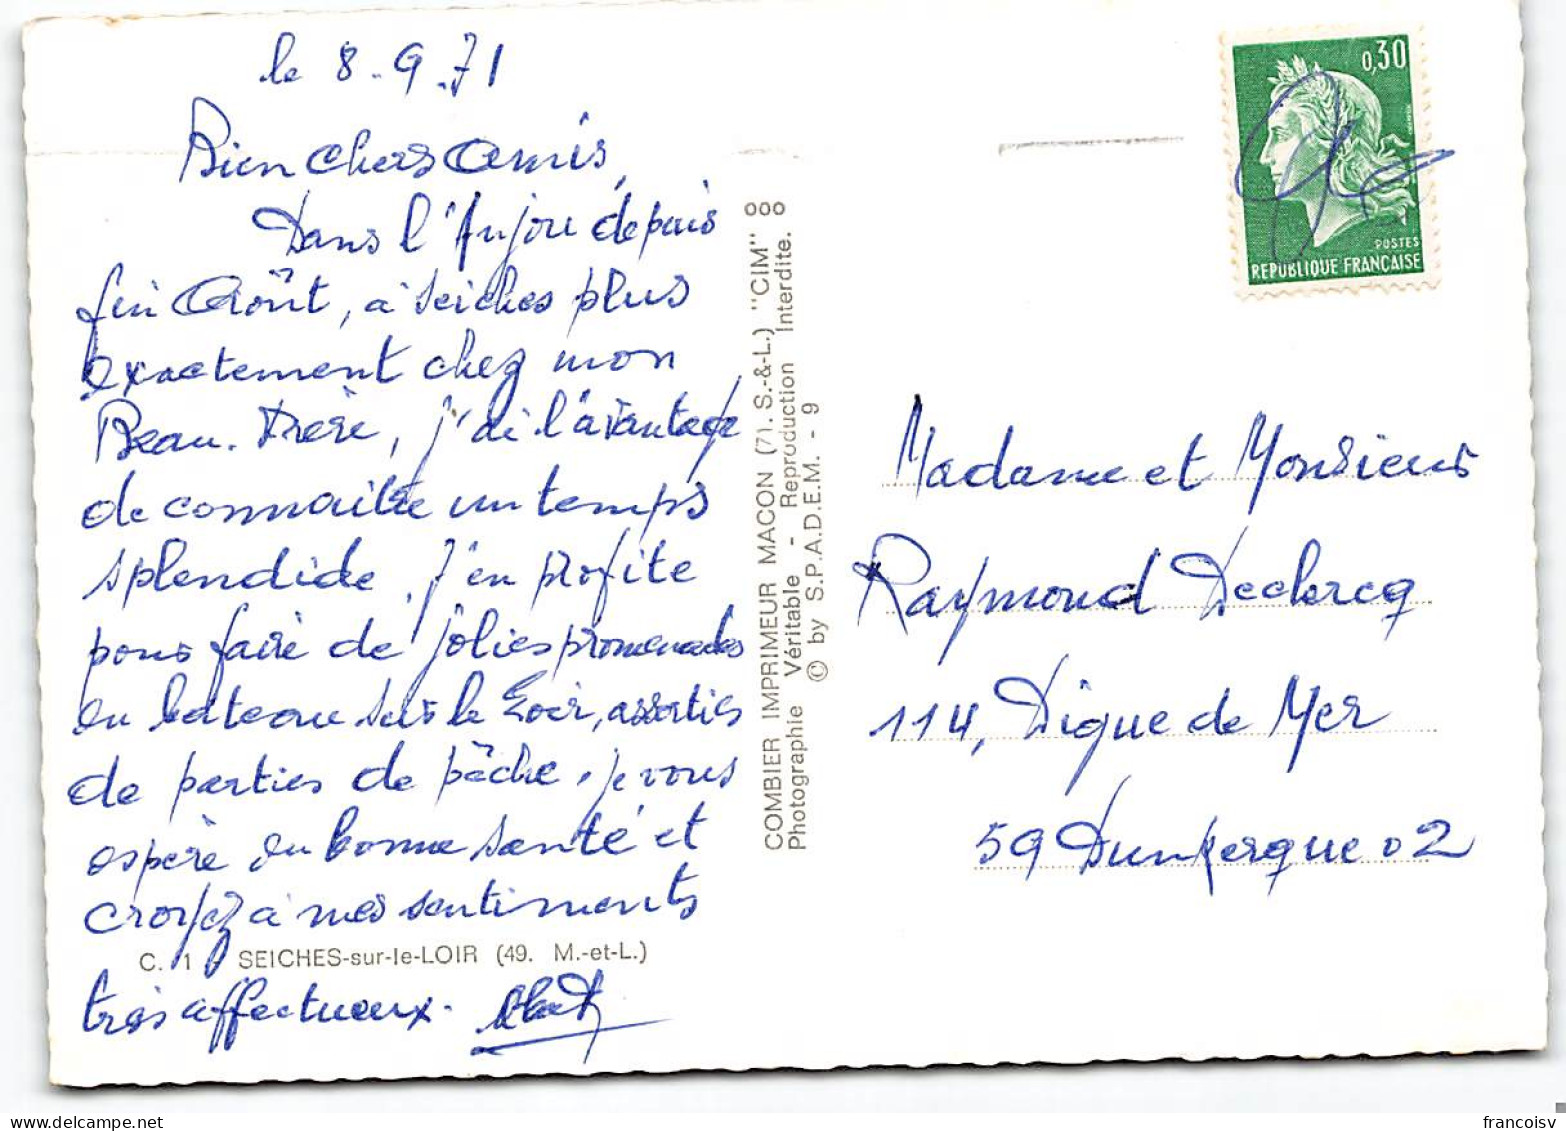 le 8.9.71
Bien chers Amis,
Dans l'Anjou depuis
fin Août, à Seiches plus
exactement chez mon
Beau-Frère, j'ai l'avantage
de connaître un temps
splendide. J'en profite
pour faire de jolies promenades
en bateau sur le Loir, assorties
de parties de pêche. je vous
espère en bonne santé et
croyez à mes sentiments
C. 1 SEICHES-sur-le-LOIR (49. M.-et-L.)
très affectueux.
COMBIER IMPRIMEUR MACON (71. S.-&-L.) "CIM"
Photographie Véritable - Reproduction Interdite.
© by S.P.A.D.E.M. - 9
0,30
POSTES
REPUBLIQUE FRANÇAISE
Madame et Monsieur
Raymond Declercq
114, Digue de Mer
59 Dunkerque 02
francoisv